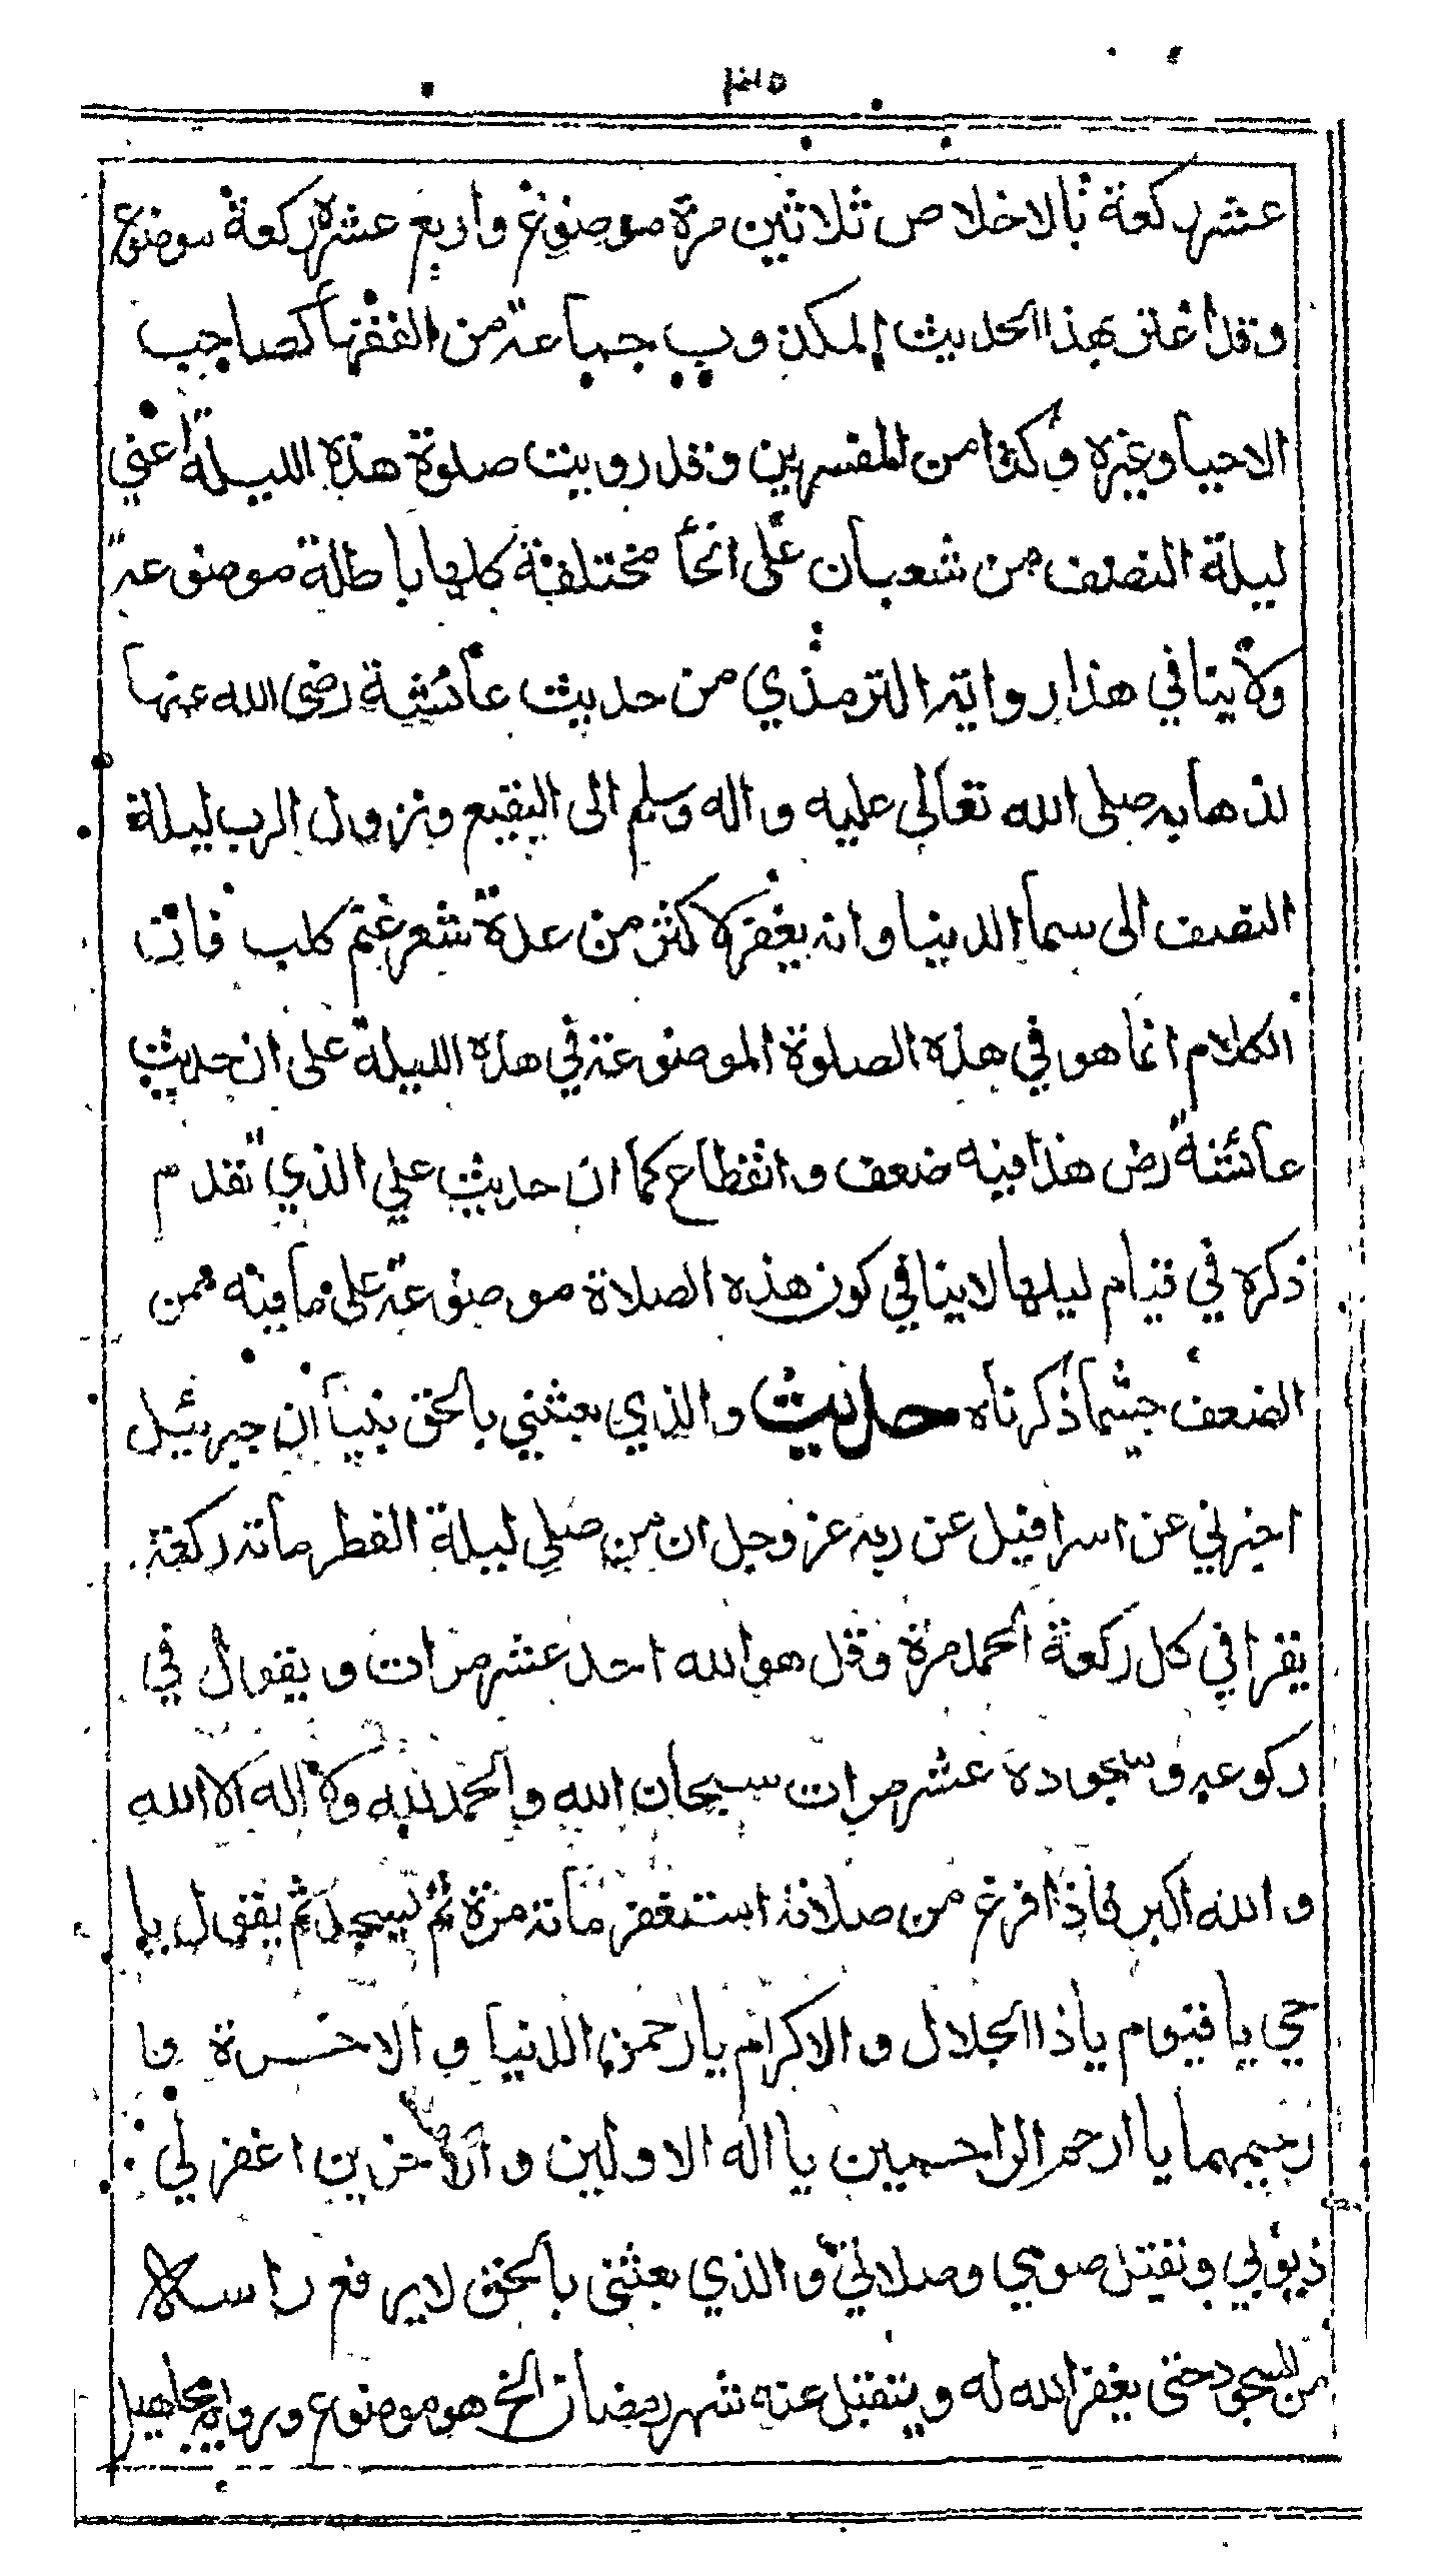 ٣٥
عشر ركعة بالاخلاص ثلاثين مرة موضوع واربع عشرة ركعة موضوع
وقد اغتر بهذا الحديث المكذوب جماعة من الفقهاء كصاحب
الاحيا وغيره وكذا من المفسرين وقد رويت صلوة هذه الليلة اعني
ليلة النصف من شعبان على انحاء مختلفة كلها باطلة موضوعة
ولا ينافي هذا رواية الترمذي من حديث عائشة رضى الله عنها
لذهابه صلى الله تعالى عليه واله وسلم الى البقيع ونزول الرب ليلة
النصف الى سماء الدنيا وانه يغفر لاكثر من عدة شعر غنم كلب فان
الكلام انما هو في هذه الصلوة الموضوعة في هذه الليلة على ان حديث
عائشة رض هذا فيه ضعف وانقطاع كما ان حديث علي الذي تقدم
ذكره في قيام ليلها لا ينافي كون هذه الصلاة موضوعة على ما فيه من
الضعف حيثما ذكرناه حديث والذي بعثني بالحق نبيا ان جبرئيل
اخبرني عن اسرافيل عن ربه عز وجل ان من صلى ليلة الفطر مائة ركعة
يقرا في كل ركعة الحمد مرة وقل هو الله احد عشر مرات ويقول في
ركوعه وسجوده عشر مرات سبحان الله والحمد لله ولا اله الا الله
والله اكبر فاذا فرغ من صلاته استغفر مائة مرة ثم يسجد ثم يقول يا
حي يا قيوم يا ذا الجلال والاكرام يا رحمن الدنيا والاخرة و يا
رحيمهما يا ارحم الراحمين يا اله الاولين والاخرين اغفر لي
ذنوبي وتقبل صومي وصلاتي والذي بعثني بالحق لا يرفع راسه
من السجود حتى يغفر الله له ويتقبل عنه شهر رمضان الخ هو موضوع ورواته مجاهيل